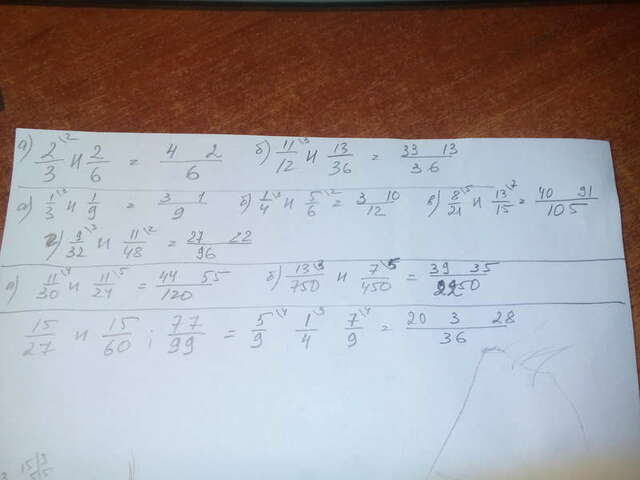 а) 2/3 \2 и 2/6 = 4 2/6 б) 11/12 \3 и 13/36 = 33 13/36
а) 1/3 \3 и 1/9 = 3 1/9 б) 1/4 \3 и 5/6 \2 = 3 10/12 в) 8/21 \5 и 13/15 \7 = 40 91/105
г) 9/32 \3 и 11/48 \2 = 27 22/96
а) 11/30 \4 и 11/24 \5 = 44 55/120 б) 13/750 \3 и 7/450 \5 = 39 35/2250
15/27 и 15/60 ; 77/99 = 5/9 \4 1/4 \9 7/9 \4 = 20 3 28/36